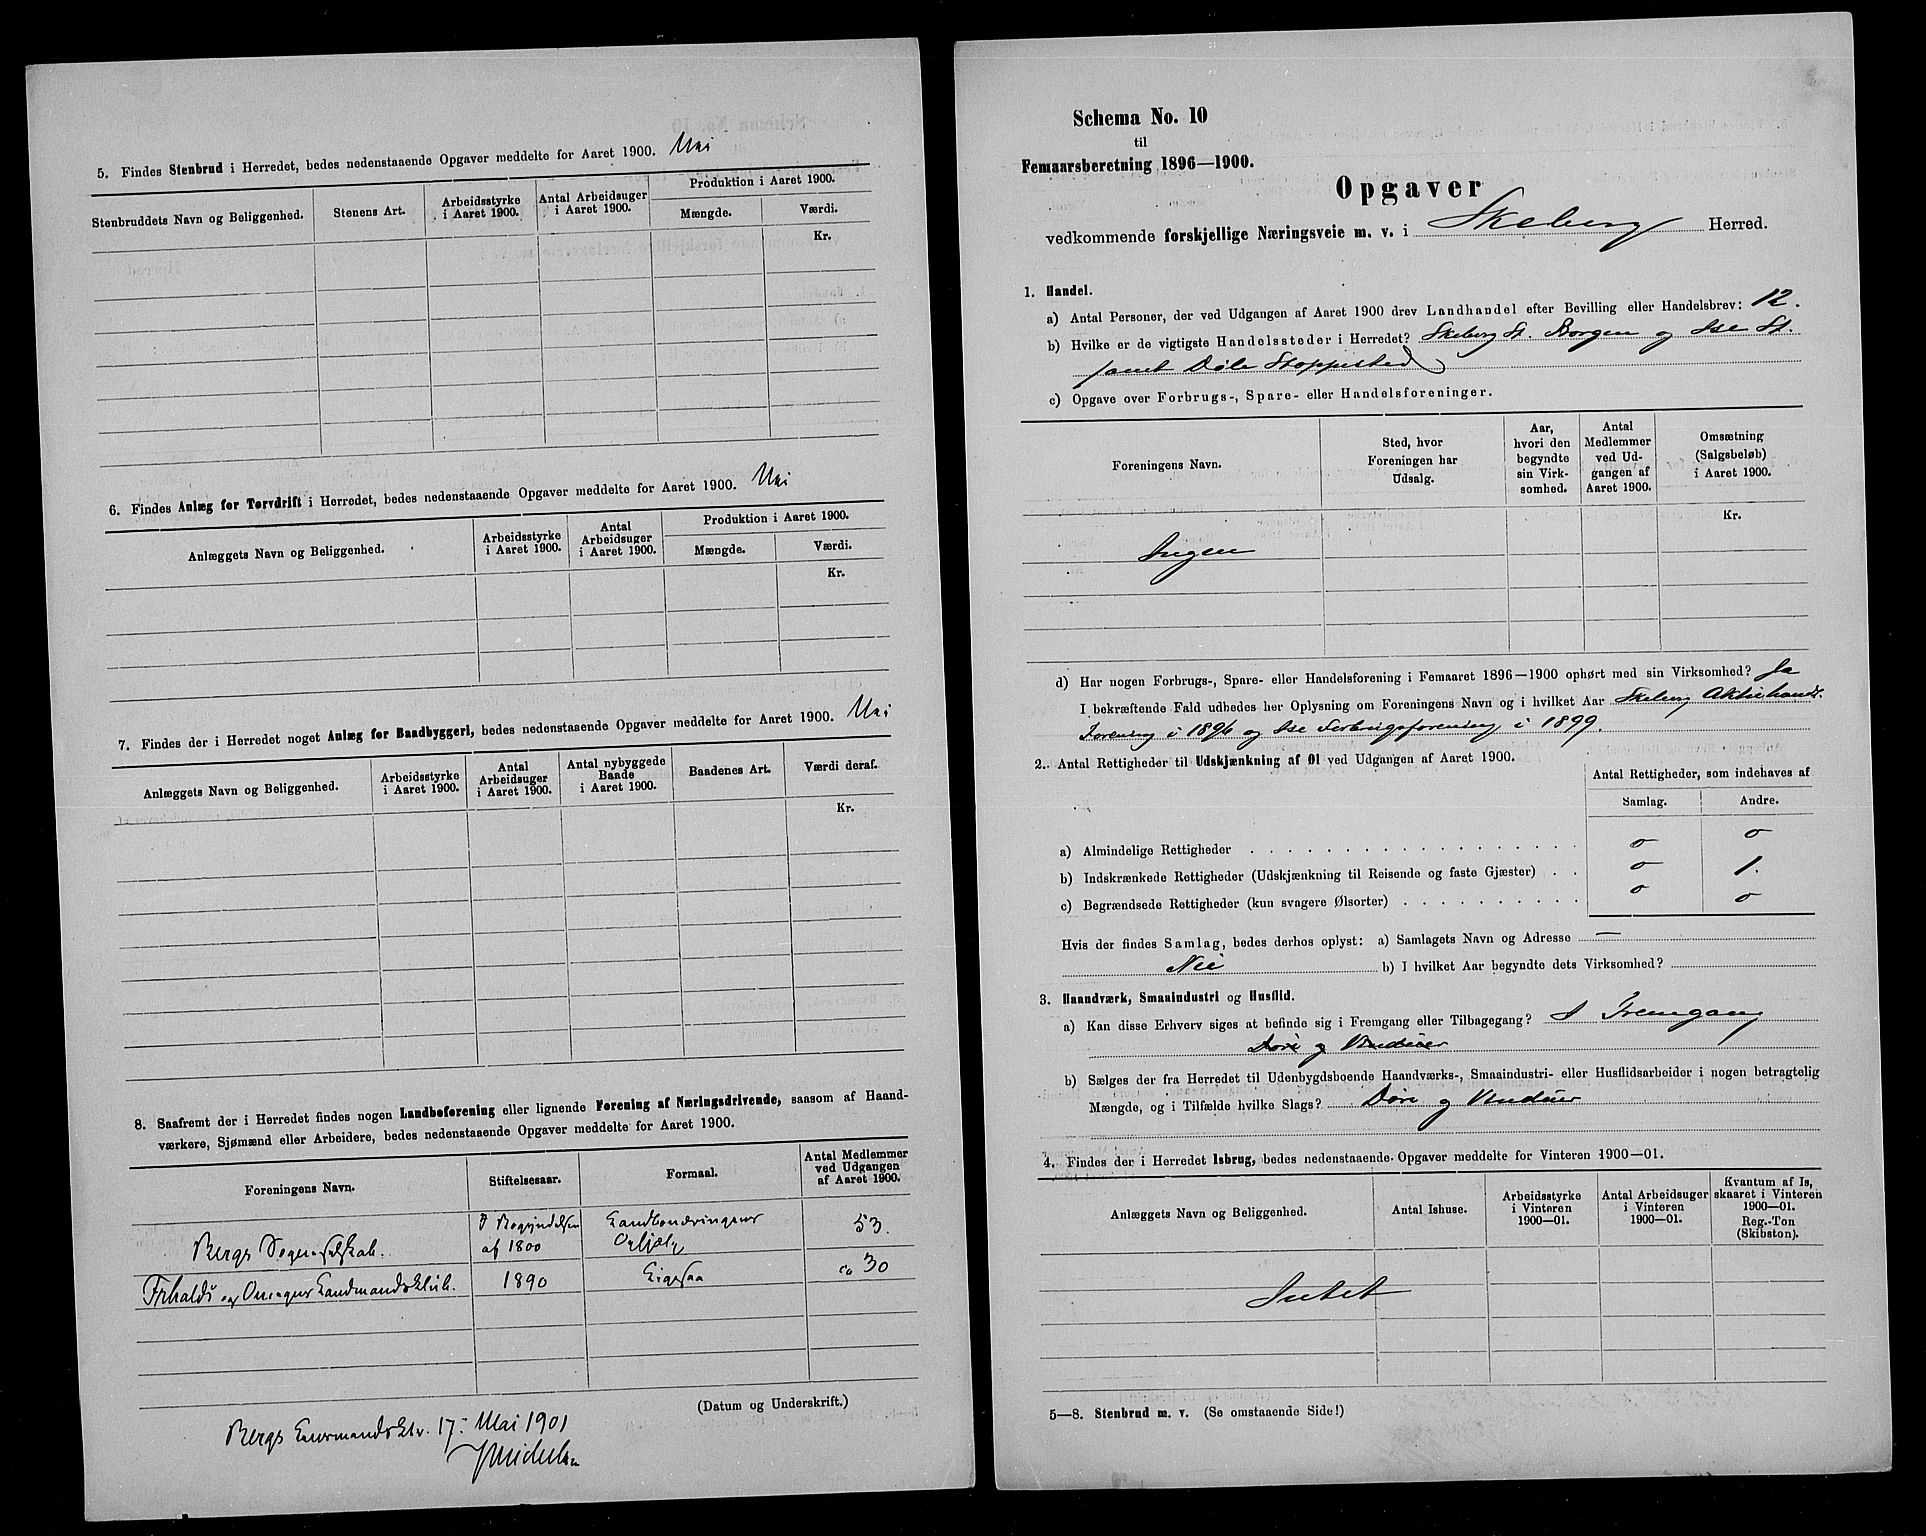 5. Findes Stenbrud i Herredet, bedes nedenstaaende Opgaver meddelte for Aaret 1900. Nei
Stenbruddets Navn og Beliggenhed. Stenens Art. Arbeidsstyrke i Aaret 1900. Antal Arbeidsuger i Aaret 1900. Produktion i Aaret 1900.
Mængde. Værdi.
Kr.
6. Findes Anlæg for Torvdrift i Herredet, bedes nedenstaaende Opgaver meddelte for Aaret 1900. Nei
Anlæggets Navn og Beliggenhed. Arbeidsstyrke i Aaret 1900. Antal Arbeidsuger i Aaret 1900. Produktion i Aaret 1900.
Mængde. Værdi.
Kr.
7. Findes der i Herredet noget Anlæg for Baadbyggeri, bedes nedenstaaende Opgaver meddelte for Aaret 1900. Nei
Anlæggets Navn og Beliggenhed. Arbeidsstyrke i Aaret 1900. Antal Arbeidsuger i Aaret 1900. Antal nybyggede Baade i Aaret 1900. Baadenes Art. Værdi deraf.
Kr.
8. Saafremt der i Herredet findes nogen Landboforening eller lignende Forening af Næringsdrivende, saasom af Haand-
værkere, Sjømænd eller Arbeidere, bedes nedenstaaende Opgaver meddelte for Aaret 1900.
Foreningens Navn. Stiftelsesaar. Formaal. Antal Medlemmer ved Udgangen af Aaret 1900.
Bergs Sogneselskab. I Begyndelsen af 1800 Landbonæringens Ophjælp 53.
og Landmandsklub. 1890 Ligesaa ca 30
(Datum og Underskrift.)
Bergs Lensmandsktr. 17. Mai 1901
Schema No. 10
til
Femaarsberetning 1896—1900.
Opgaver
vedkommende forskjellige Næringsveie m. v. i Skeberg Herred.
1. Handel.
a) Antal Personer, der ved Udgangen af Aaret 1900 drev Landhandel efter Bevilling eller Handelsbrev: 12.
b) Hvilke er de vigtigste Handelssteder i Herredet? Skeberg St. Borgen og Ise St.
samt Døle Stoppested
c) Opgave over Forbrugs-, Spare- eller Handelsforeninger.
Foreningens Navn. Sted, hvor Foreningen har Udsalg. Aar, hvori den begyndte sin Virk-somhed. Antal Medlemmer ved Ud-gangen af Aaret 1900. Omsætning (Salgsbeløb) i Aaret 1900.
Kr.
Ingen
d) Har nogen Forbrugs-, Spare- eller Handelsforening i Femaaret 1896—1900 ophørt med sin Virksomhed? Ja
I bekræftende Fald udbedes her Oplysning om Foreningens Navn og i hvilket Aar Skeberg Aktiehandls.
Forening i 1896 og Ise Forbrugsforening i 1899.
2. Antal Rettigheder til Udskjænkning af Øl ved Udgangen af Aaret 1900.
Antal Rettigheder, som indehaves af
Samlag. Andre.
a) Almindelige Rettigheder 0 0
b) Indskrænkede Rettigheder (Udskjænkning til Reisende og faste Gjæster) 0 1.
c) Begrændsede Rettigheder (kun svagere Ølsorter) 0 0
Hvis der findes Samlag, bedes derhos oplyst: a) Samlagets Navn og Adresse —
Nei b) I hvilket Aar begyndte dets Virksomhed?
3. Haandværk, Smaaindustri og Husflid.
a) Kan disse Erhverv siges at befinde sig i Fremgang eller Tilbagegang? I Fremgang
Døre og Vinduer
b) Sælges der fra Herredet til Udenbygdsboende Haandværks-, Smaaindustri- eller Husflidsarbeider i nogen betragtelig
Mængde, og i Tilfælde hvilke Slags? Døre og Vinduer
4. Findes der i Herredet Isbrug, bedes nedenstaaende Opgaver meddelte for Vinteren 1900—01.
Anlæggets Navn og Beliggenhed. Antal Ishuse. Arbeidsstyrke i Vinteren 1900—01. Antal Arbeidsuger i Vinteren 1900—01. Kvantum af Is, skaaret i Vinteren 1900—01. Reg.-Ton (Skibston.)
Intet
5—8. Stenbrud m. v. (Se omstaaende Side!)